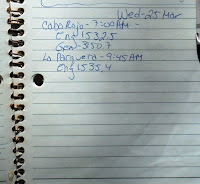 Wed-25 Mar
Cabo Rojo - 7:00AM -
Eng 1532.5
Gen - 350.7
La Parguera - 9:45AM
Eng 1535.4